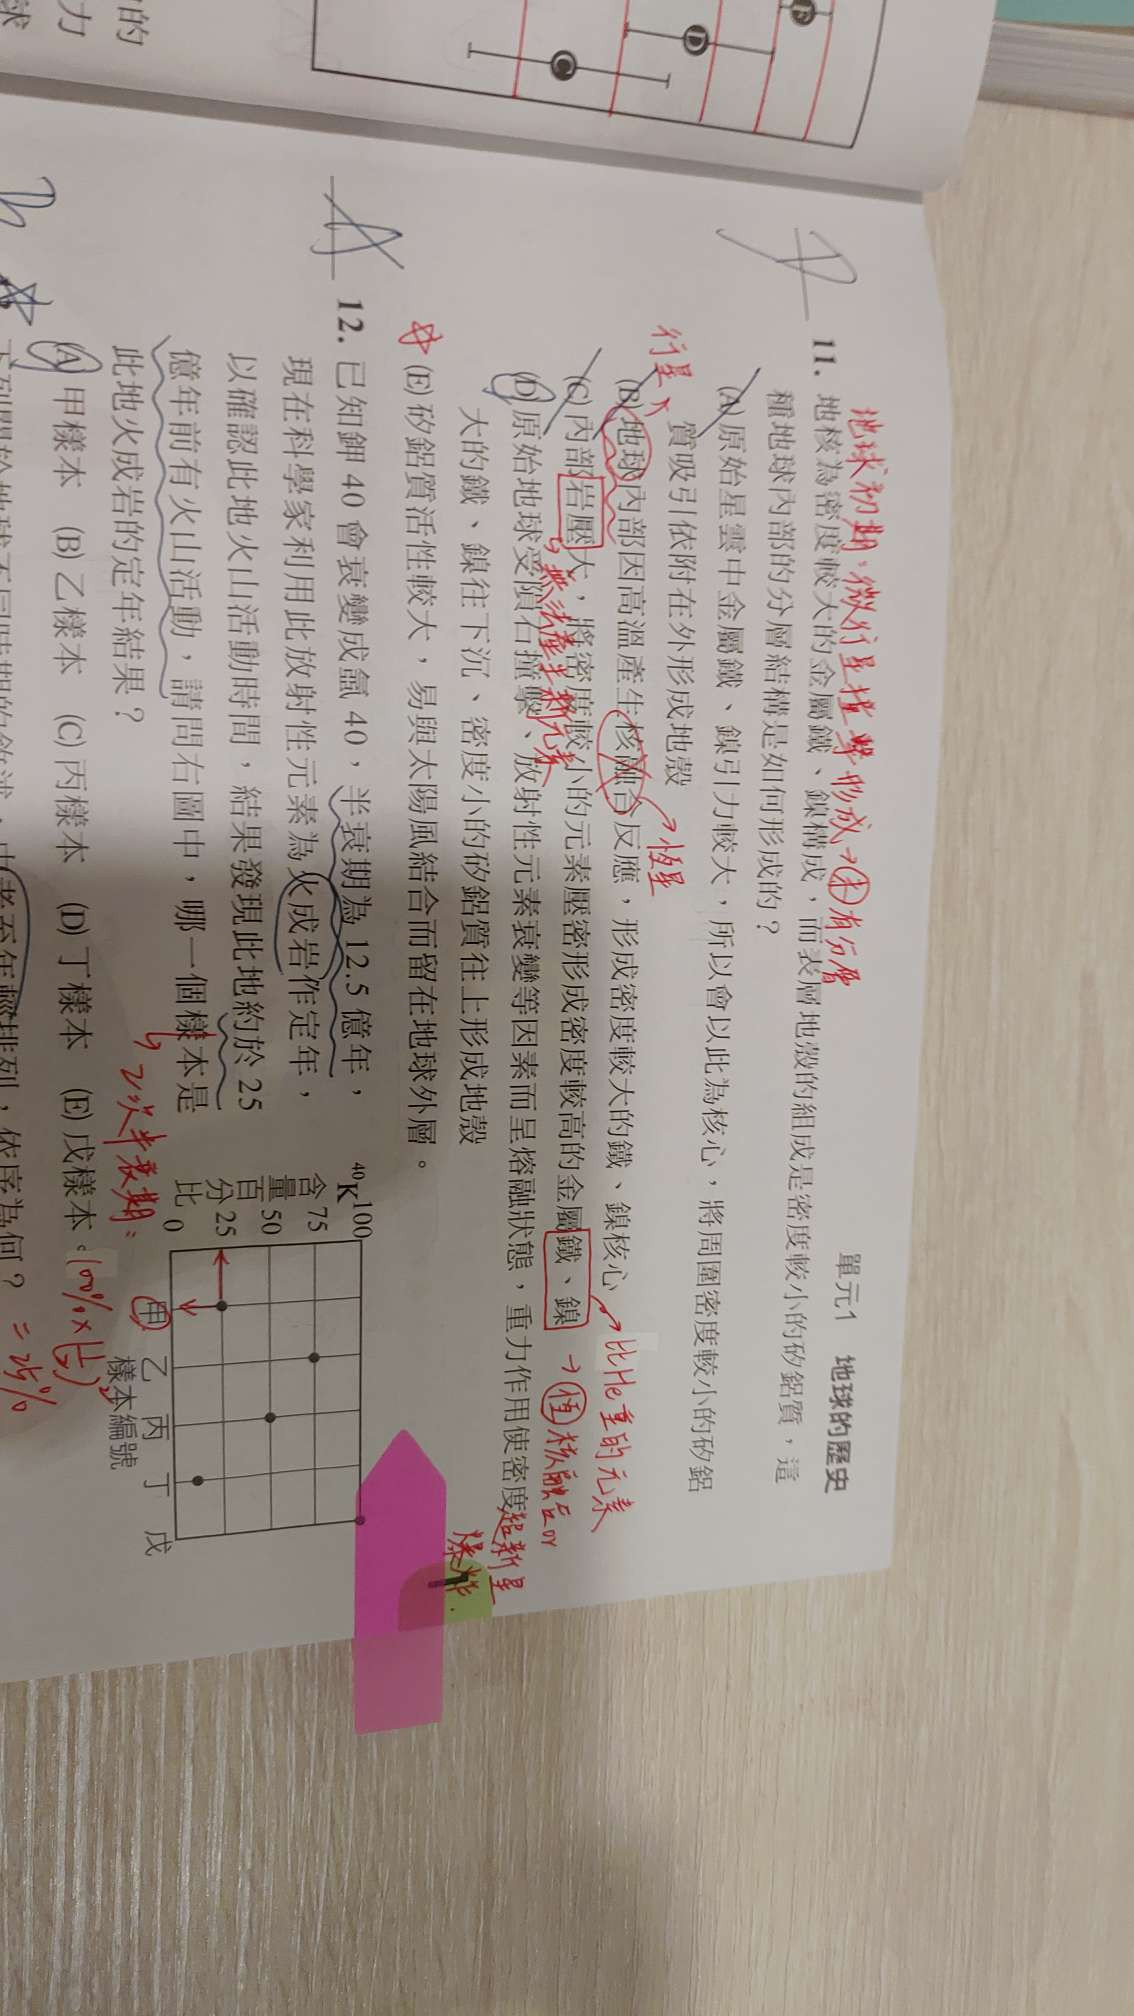 的
力
球
E
D
C
單元1 地球的歷史
地球初期：微行星撞擊形成→未有分層
11. 地核為密度較大的金屬鐵、鎳構成，而表層地殼的組成是密度較小的矽鋁質，這
種地球內部的分層結構是如何形成的？
(A)原始星雲中金屬鐵、鎳引力較大，所以會以此為核心，將周圍密度較小的矽鋁
質吸引依附在外形成地殼
行星
→恆星
(B)地球內部因高溫產生核融合反應，形成密度較大的鐵、鎳核心
→比He重的元素
(C)內部岩壓大，將密度較小的元素壓密形成密度較高的金屬鐵、鎳
→恆核融合or
超新星
爆炸.
↳無法產生新元素
(D)原始地球受隕石撞擊、放射性元素衰變等因素而呈熔融狀態，重力作用使密度
大的鐵、鎳往下沉、密度小的矽鋁質往上形成地殼
(E)矽鋁質活性較大，易與太陽風結合而留在地球外層。
7
12. 已知鉀 40 會衰變成氬 40，半衰期為 12.5 億年，
現在科學家利用此放射性元素為火成岩作定年，
以確認此地火山活動時間，結果發現此地約於 25
億年前有火山活動，請問右圖中，哪一個樣本是
此地火成岩的定年結果？
↳2次半衰期：
(A)甲樣本 (B)乙樣本 (C)丙樣本 (D)丁樣本 (E)戊樣本。
100%×(½)²
=25%
⁴⁰K含量百分比
100
75
50
25
0
甲 乙 丙 丁 戊
樣本編號
老至年輕排列，依序為何？